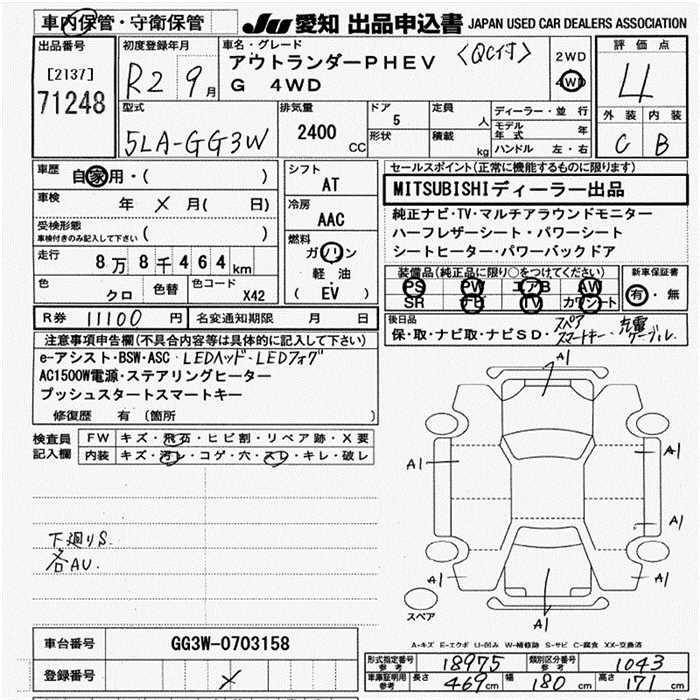 車内保管・守衛保管
JU 愛知 出品申込書 JAPAN USED CAR DEALERS ASSOCIATION
出品番号
[2137]
71248
初度登録年月
R2 9月
車名・グレード
アウトランダーPHEV <QC付>
G 4WD
2WD
4WD
評価点
4
外装 内装
C B
型式
5LA-GG3W
排気量
2400 CC
ドア
5
形状
定員
人
積載
kg
ディーラー・並行
モデル年式 年
ハンドル 左・右
車歴
自家用・( )
車検
年 × 月( 日)
受検形態
車検付きのみ記入して下さい ( )
走行
8万8千464km
色
クロ
色替
色コード
X42
シフト
AT
冷房
AAC
燃料
ガソリン
軽油
( EV )
セールスポイント(正常に機能するものに限ります)
MITSUBISHIディーラー出品
純正ナビ・TV・マルチアラウンドモニター
ハーフレザーシート・パワーシート
シートヒーター・パワーバックドア
装備品(純正品に限り○をつけてください)
PS PW エアB AW
SR ナビ TV カワシート
新車保証書
有・無
R券 11100円 名変通知期限 月 日
後日品
保・取・ナビ取・ナビSD・スペアスマートキー・充電ケーブル.
注意事項申告欄(不具合内容等は具体的に記入して下さい)
e-アシスト・BSW・ASC・LEDヘッド・LEDフォグ
AC1500W電源・ステアリングヒーター
プッシュスタートスマートキー
修復歴 有 (箇所 )
検査員記入欄
FW キズ・飛石・ヒビ割・リペア跡・X要
内装 キズ・汚レ・コゲ・穴・スレ・キレ・破レ
下廻りS.
各AU.
A1
A1
A1
A1
A1
A1
A1
スペア
A-キズ E-エクボ U-凹み W-補修跡 S-サビ C-腐食 XX-交換済
車台番号 GG3W-0703158
登録番号 ×
形式指定番号 参考 18975 類別区分番号 参考 1043
車庫証明用 参考 長さ 469cm 幅 180cm 高さ 171cm